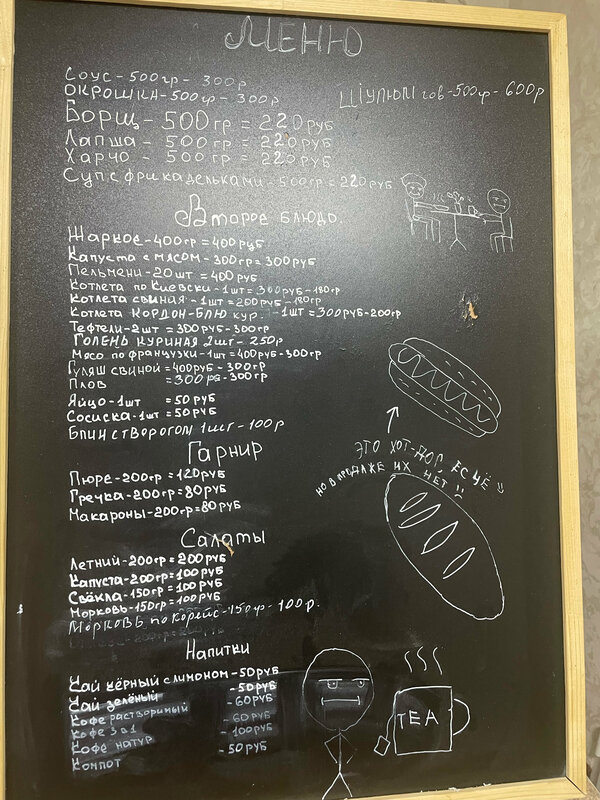 МЕНЮ
СОУС-500гр-300р
ОКРОШКА-500гр-300р
ШУЛЮМ гов-500гр-600р
БОРЩ-500гр=220РУБ
ЛАПША-500гр=220РУБ
ХАРЧО-500гр=220РУБ
Суп с фрикадельками-500гр=220РУБ
Второе блюдо.
Жаркое-400гр=400руб
Капуста с мясом-300гр=300руб
Пельмени-20шт=400руб
Котлета по Киевски-1шт=300руб-180гр
Котлета свиная-1шт=200руб-180гр
Котлета КОРДОН-БЛЮ кур.-1шт=300руб-200гр
Тефтели-2шт=300руб-300гр
ГОЛЕНЬ КУРИНАЯ 2шт-250р
Мясо по французки-1шт=400руб-300гр
Гуляш свиной=400руб-300гр
Плов =300ру-300гр
Яйцо-1шт =50руб
Сосиска-1шт=50руб
БЛИН СТВОРОГОМ 1шт-100р
ЭТО ХОТ-ДОГ, ЕСЧЁ
НО В ПРОДАЖЕ ИХ НЕТ !!
Гарнир
Пюре-200гр=120руб
Гречка-200гр=80руб
Макароны-200гр=80руб
Салаты
Летний-200гр=200руб
Капуста-200гр=100руб
Свёкла-150гр=100руб
Морковь-150гр=100руб
МОРКОВЬ по корейс-150гр-100р.
Напитки
Чай чёрный с лимоном-50руб
Чай зелёный -50руб
Кофе растворимый -60руб
Кофе 3 в 1 -60руб
Кофе натур -100руб
Компот -50руб
TEA